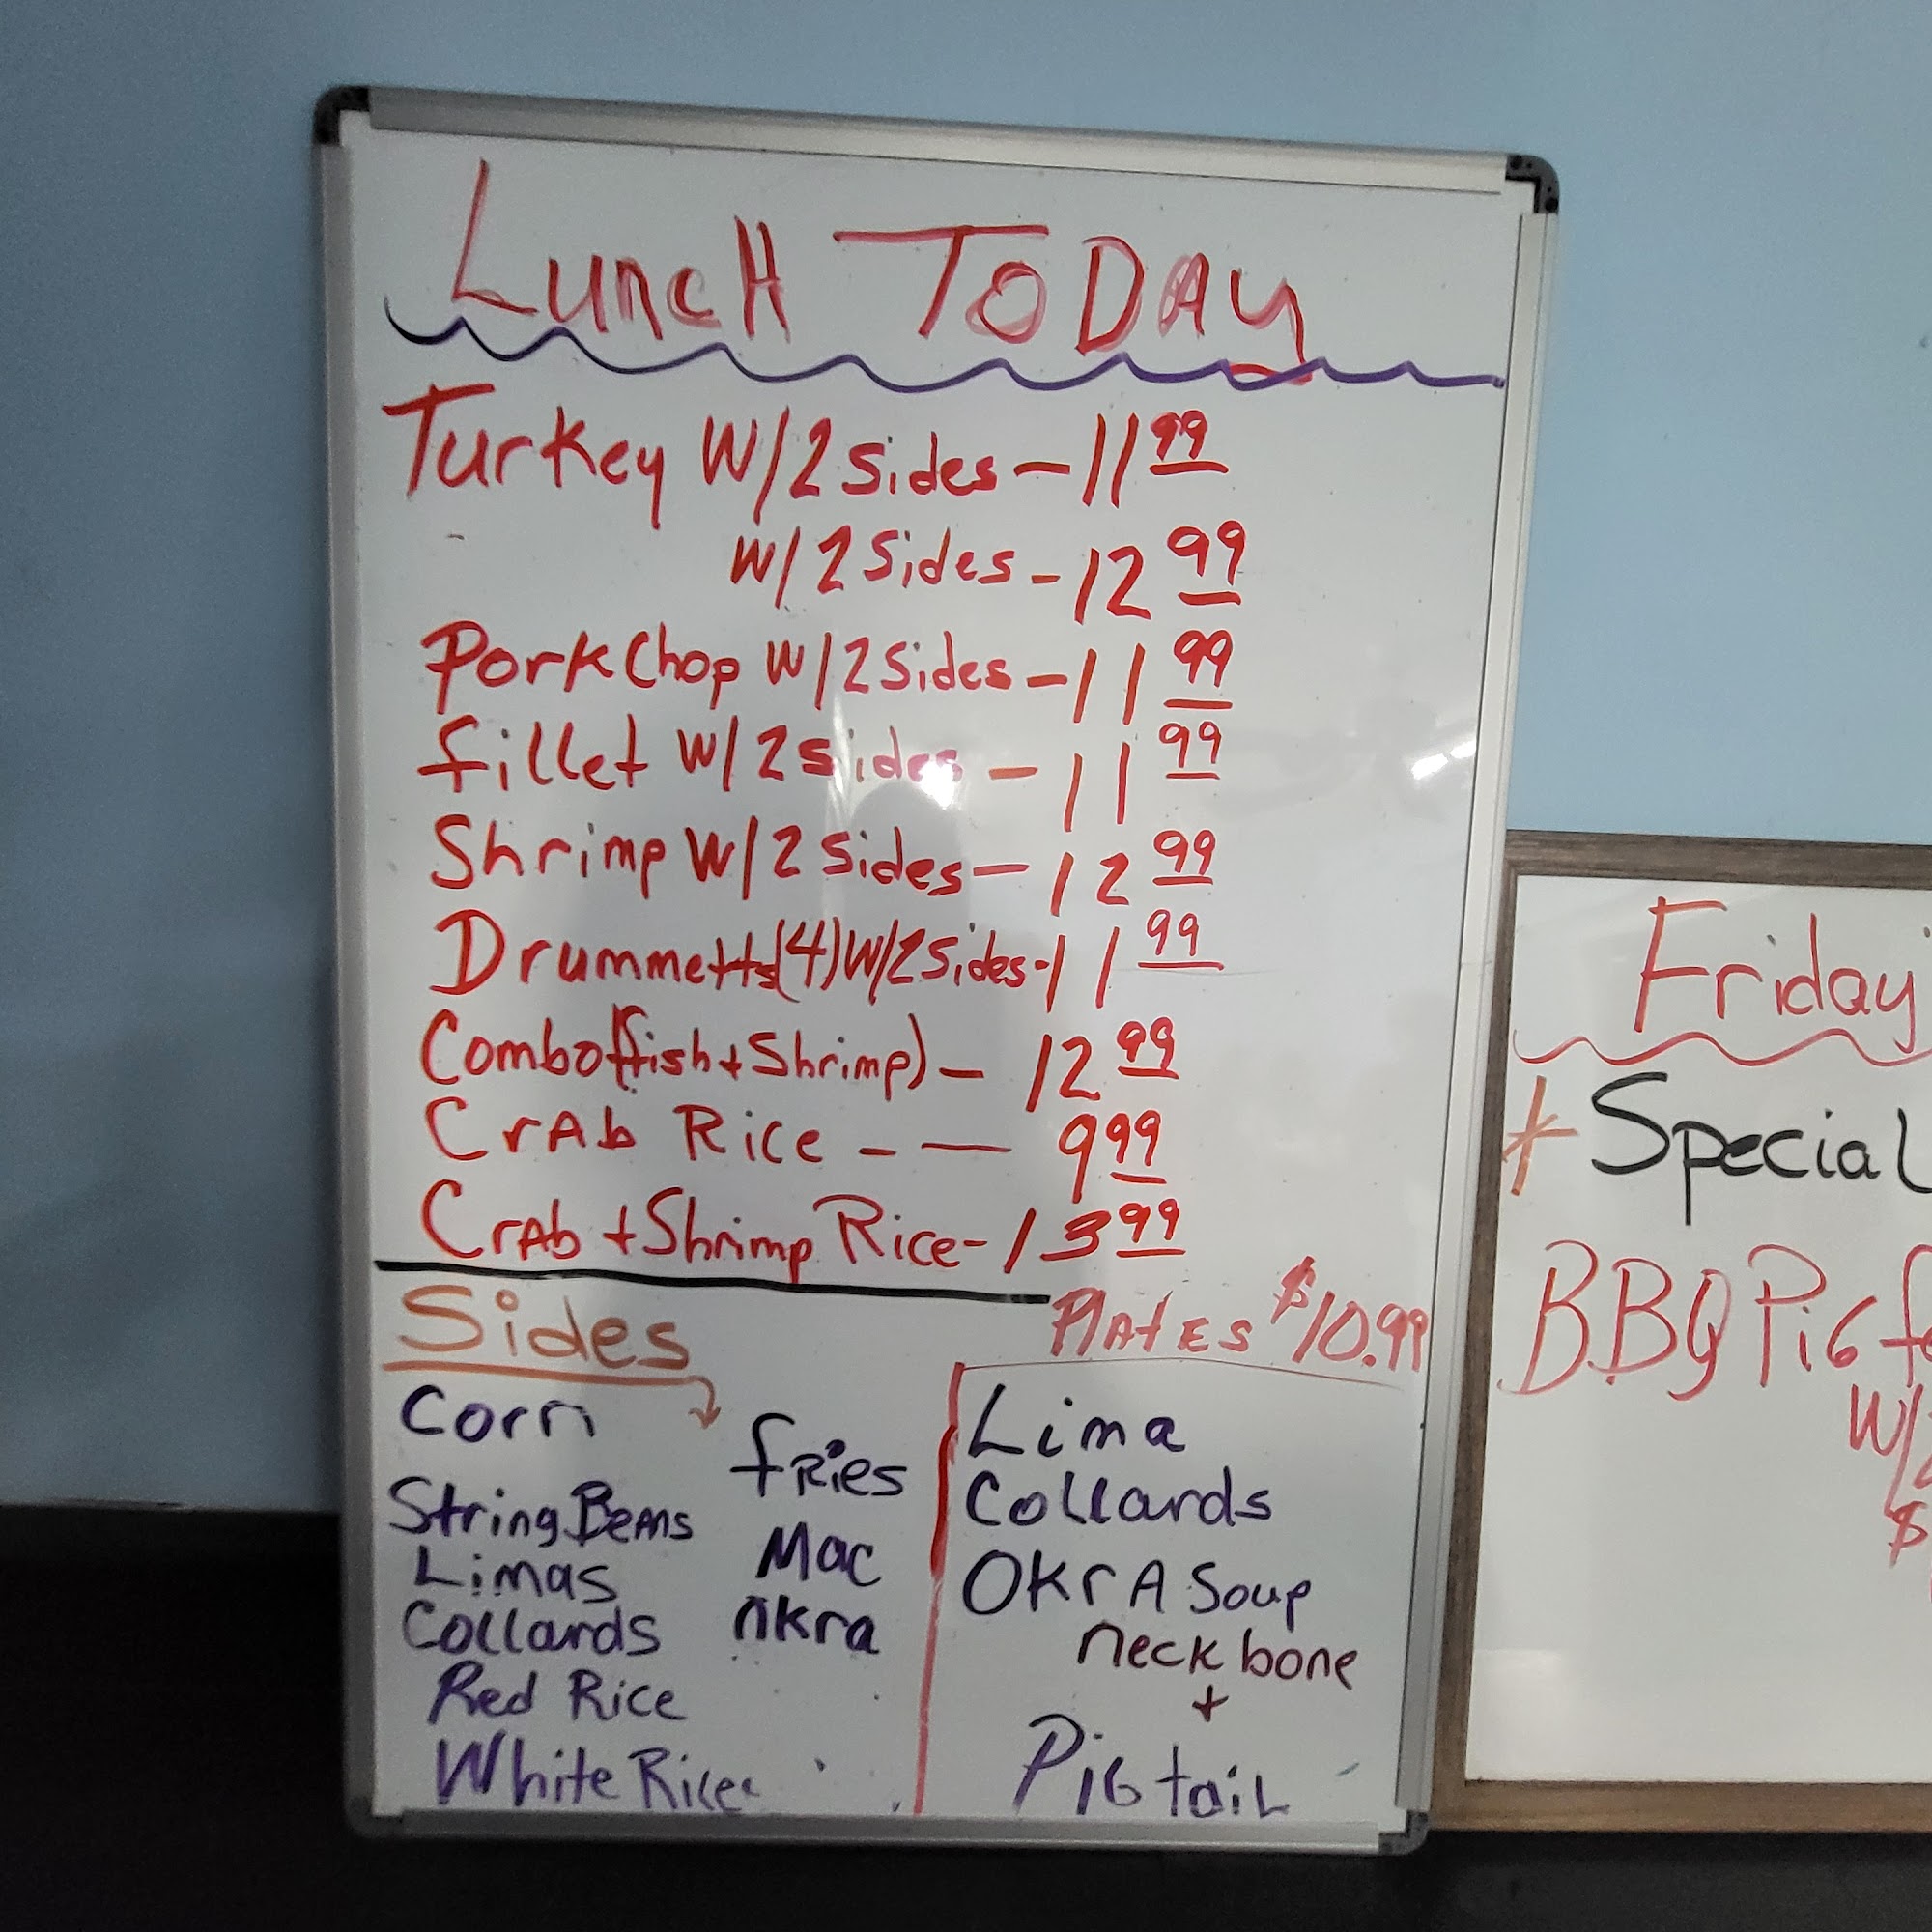 Lunch Today
Turkey W/2 Sides - 11 99
W/2 Sides - 12 99
Pork Chop W/2 Sides - 11 99
fillet W/2 sides - 11 99
Shrimp W/2 Sides - 12 99
Drummetts(4) W/2 Sides - 11 99
Combo (fish + Shrimp) - 12 99
CrAb Rice - - 9 99
CrAb + Shrimp Rice - 13 99
Sides
Corn
String Beans
Limas
Collards
Red Rice
White Rice
fRies
Mac
Okra
Plates $10.99
Lima
Collards
OKrA Soup
neck bone
+
Pig tail
Friday
* Special
BBQ Pig
W/
$